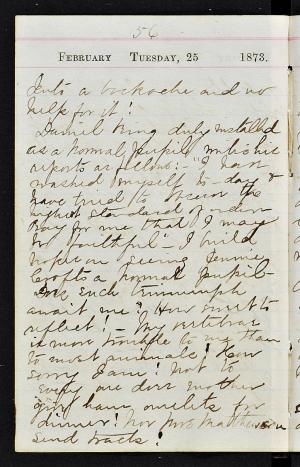 56
FEBRUARY TUESDAY, 25 1873.
Juts a backache and no
help for it!
Daniel King duly installed
as a Normal Pupil writes his
reports as follows:- "I have
washed myself to-day &
have tried to secure the
highest standard of order
Pray for me that I may
be faithful"- I build
hopes on seeing Jennie
Crofts a normal Pupil-
Do such triumph
await me? How sweet to
reflect! - My
is more to me than
to most animals! How
sorry I am! Not to
every one does mother
give ham omelets for
dinner! Nor Mrs Matthewson
send tracts!